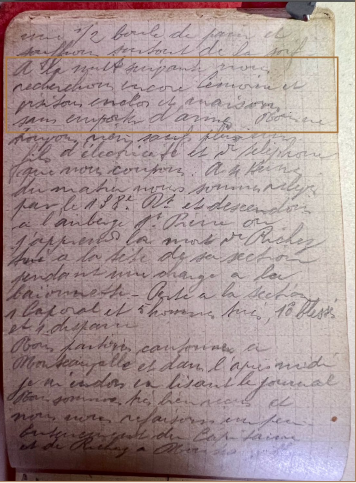 une 1/2 boule de pain et
souffrons surtout de la soif
A la nuit suivante nous
recherchons encore Lemoine et
visitons enclos et maisons
sans importance d'arme. Nous ne
trouvons rien sauf plusieurs
fils d'électricité et de téléphone
que nous coupons. A 4 heures
du matin nous sommes relevés
par le 138e Rt et descendons
a l'auberge St Pierre ou
j'apprends la mort de Richez
tué a la tête de sa section
pendant une charge a la
baionnette - Perte a la section
1 Caporal et 5 hommes tués, 18 blessés
et 4 disparu
Nous partons cantonner a
et dans l'après midi
je m'endors en lisant le journal
Nous sommes très bien nous et
nous nous refaisons un peu
du Capitaine
et de Richez a